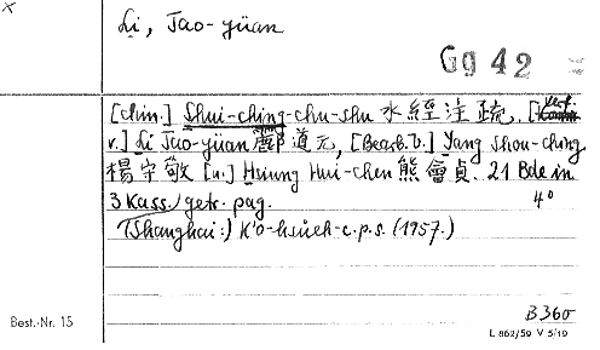 x
Li, Tao-yüan
Gg 42
[chin.] Shui-ching-chu-shu 水經注疏. [Verf.
v.] Li Tao-yüan 酈道元, [Bearb. v.] Yang Shou-ching
楊守敬 [u.] Hsiung Hui-chen 熊會貞. 21 Bde in
3 Kass. getr. pag. 4°
(Shanghai:) K'o-hsüeh-c.p.s. (1957.)
B 360
Best.-Nr. 15
L 862/59 V 5/19